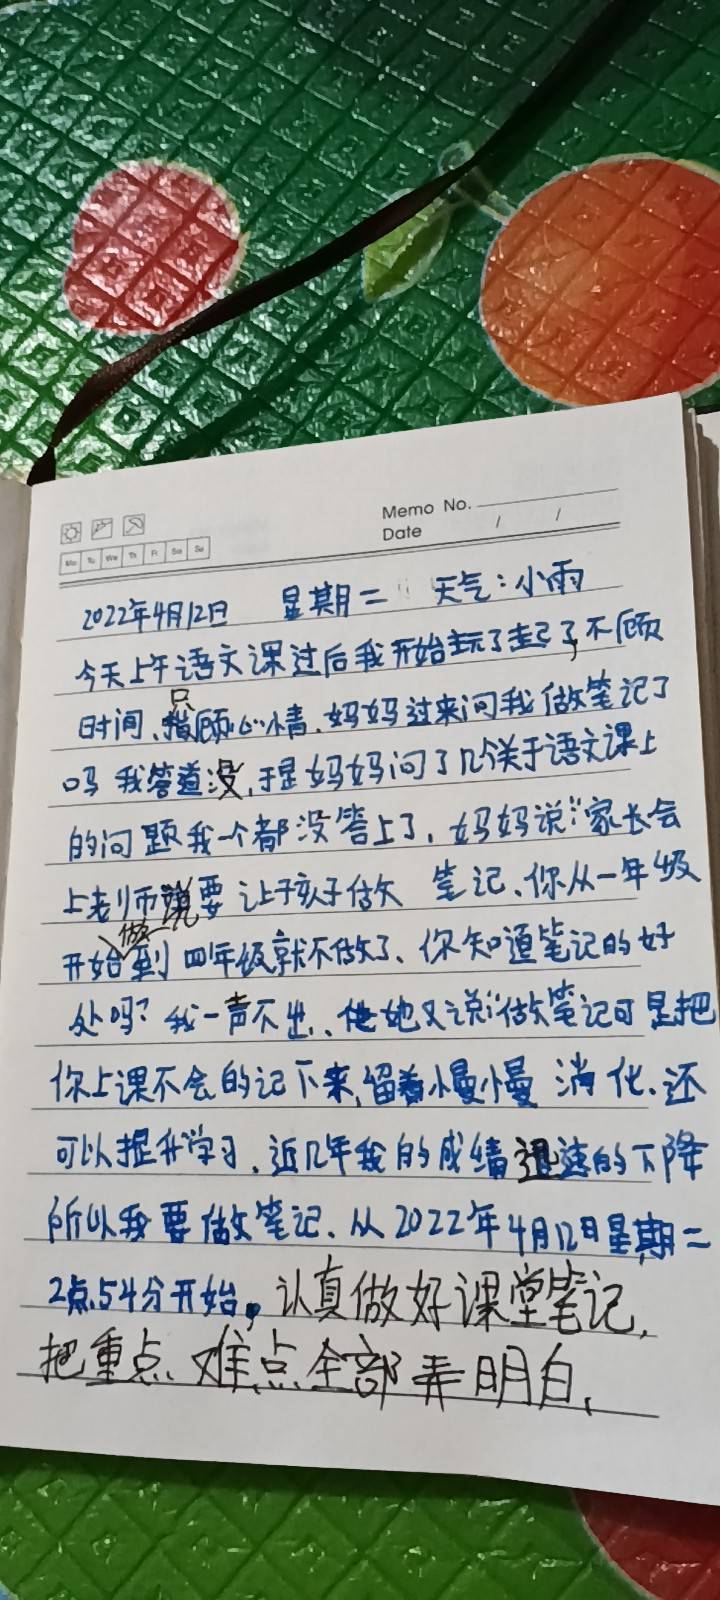 Memo No.
Date / /
Mo Tu We Th Fr Sa Su
2022年4月12日 星期二 天气:小雨
今天上午语文课过后我开始玩了起了,不顾
只
时间、顾心情、妈妈过来问我做笔记了
吗 我答道没,于是妈妈问了几个关于语文课上
的问题我一个都没答上了、妈妈说:"家长会
上老师说要让孩子做 笔记、你从一年级
做
开始到四年级就不做了、你知道笔记的好
处吗?我一声不出、她又说:"做笔记可是把
你上课不会的记下来,留着慢慢 消化、还
可以提升学习、近几年我的成绩迅速的下降
所以我要做笔记、从2022年4月12日星期二
2点54分开始。认真做好课堂笔记,
把重点、难点全部弄明白、